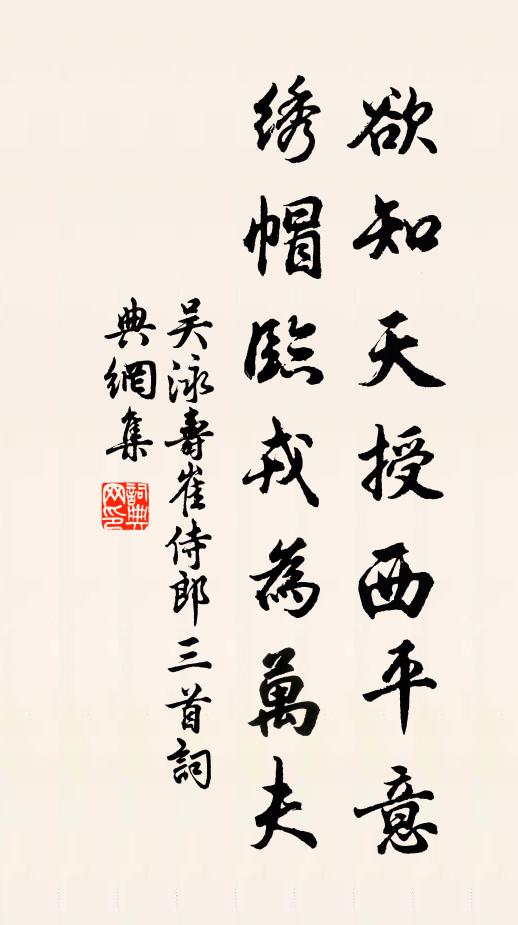 欲知天授西平意
绣帽臨戎為萬夫
吴泳壽崔侍郎三首詞
典網集
詞典网印